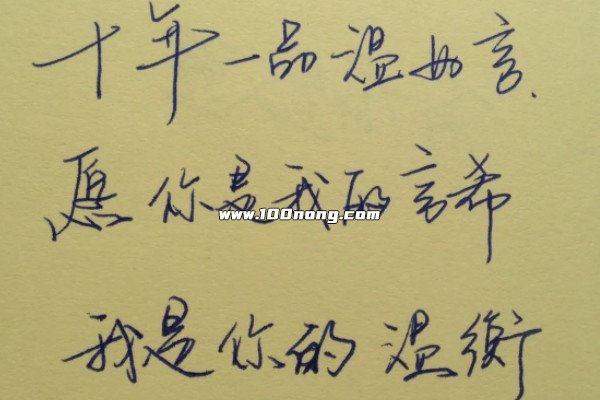 十年一品温如言.
愿你是我的言希
www.100nong.com
我是你的温衡